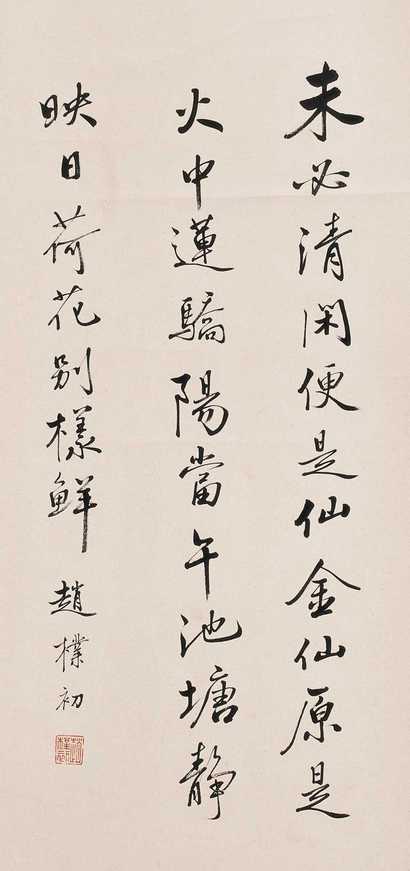 未必清閑便是仙金仙原是
火中蓮驕陽當午池塘靜
映日荷花別樣鮮 趙樸初